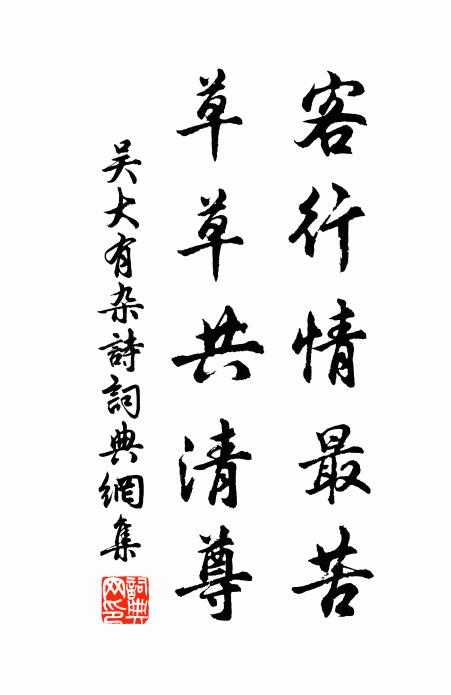 客行情最苦
草草共清尊
吴大有杂詩詞典網集
詞典网印